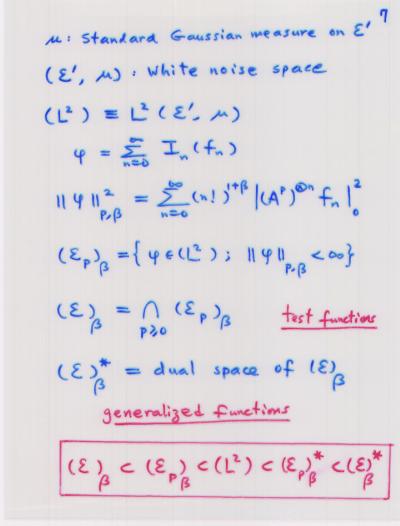 7
μ: Standard Gaussian measure on ℰ′
(ℰ′, μ): White noise space
(L²) ≡ L²(ℰ′, μ)
φ = ∑_{n=0}^{∞} I_n(f_n)
‖φ‖²_{p,β} = ∑_{n=0}^{∞} (n!)^{1+β} |(A^p)^{⊗n} f_n|²_0
(ℰ_p)_β = {φ ∈ (L²); ‖φ‖_{p,β} < ∞}
(ℰ)_β = ⋂_{p≥0} (ℰ_p)_β test functions
(ℰ)*_β = dual space of (ℰ)_β
generalized functions
(ℰ)_β ⊂ (ℰ_p)_β ⊂ (L²) ⊂ (ℰ_p)*_β ⊂ (ℰ)*_β